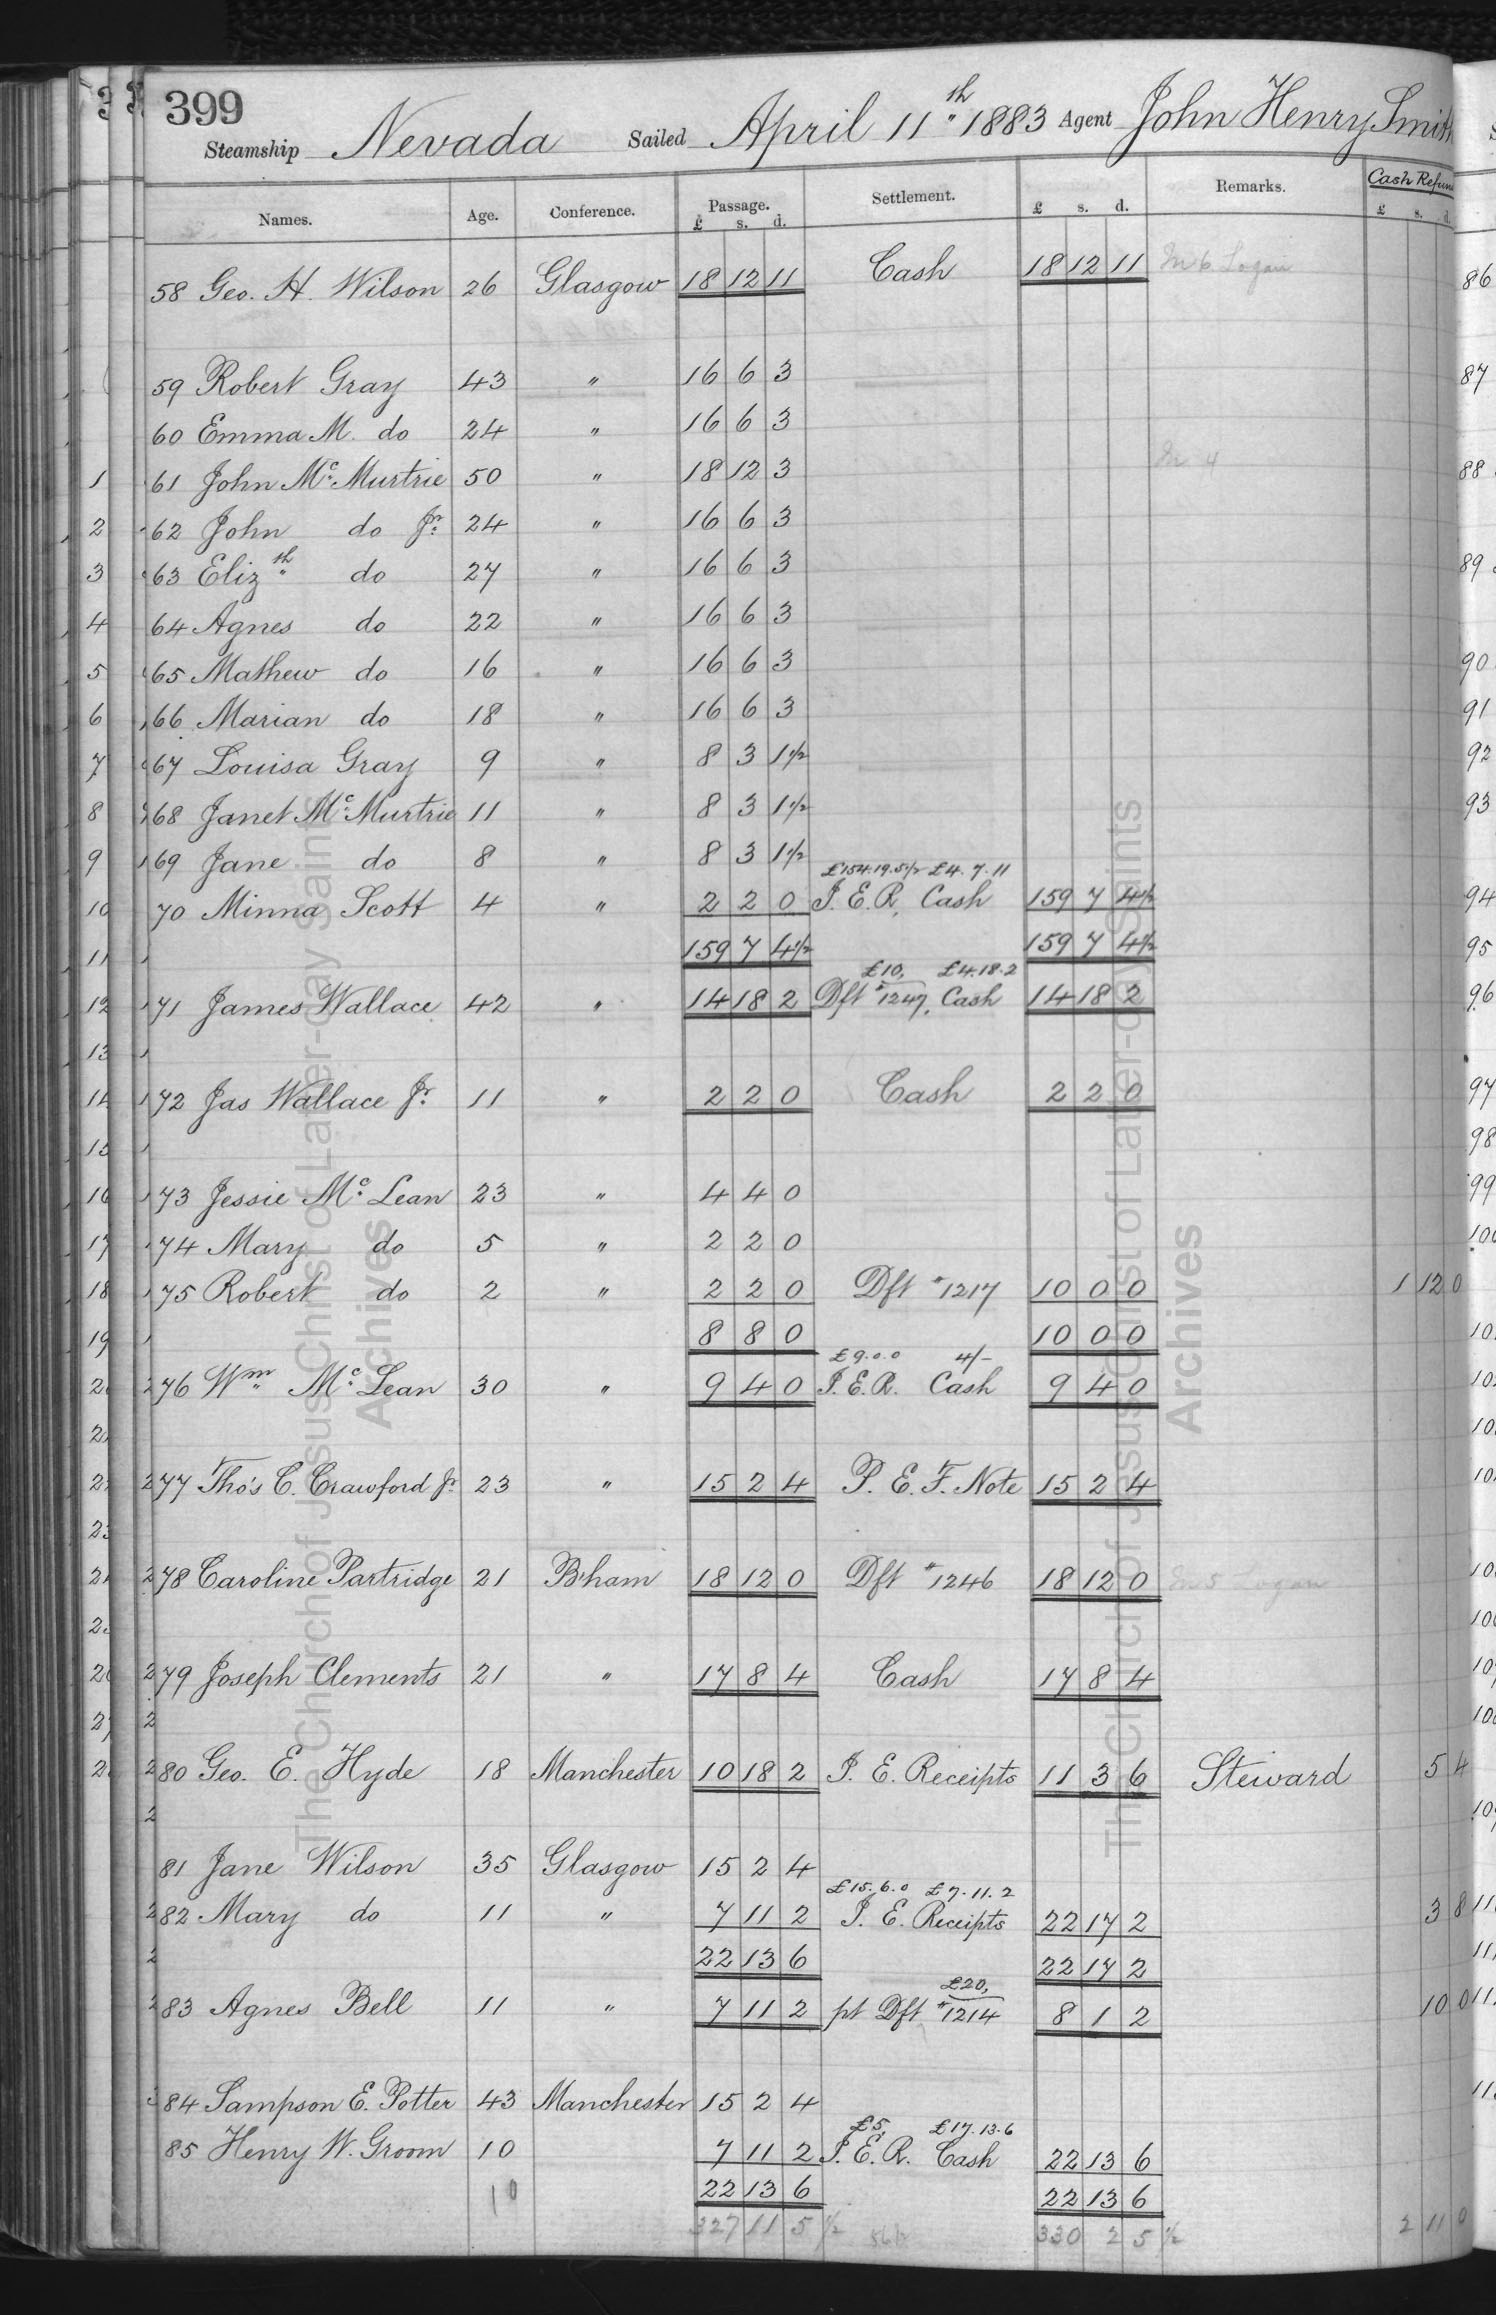 399
Steamship Nevada Sailed April 11th 1883 Agent John Henry Smith
Names. Age. Conference. Passage. £ s. d. Settlement. £ s. d. Remarks. Cash Refun £ s. d.
58 Geo. H. Wilson 26 Glasgow 18 12 11 Cash 18 12 11 Logan
59 Robert Gray 43 " 16 6 3
60 Emma M. do 24 " 16 6 3
61 John Mc Murtrie 50 " 18 12 3
62 John do Jr. 24 " 16 6 3
63 Elizth do 27 " 16 6 3
64 Agnes do 22 " 16 6 3
65 Mathew do 16 " 16 6 3
66 Marian do 18 " 16 6 3
67 Louisa Gray 9 " 8 3 1½
68 Janet Mc Murtrie 11 " 8 3 1½
69 Jane do 8 " 8 3 1½
£154.19.5½ £4.7.11
70 Minna Scott 4 " 2 2 0 I. E. R. Cash 159 7 4½
159 7 4½ 159 7 4½
£10, £4.18.2
71 James Wallace 42 " 14 18 2 Dft #1247, Cash 14 18 2
72 Jas Wallace Jr. 11 " 2 2 0 Cash 2 2 0
73 Jessie Mc Lean 23 " 4 4 0
74 Mary do 5 " 2 2 0
75 Robert do 2 " 2 2 0 Dft #1217 10 0 0 1 12 0
8 8 0 10 0 0
£9.0.0 4/-
76 Wm Mc Lean 30 " 9 4 0 I. E. R. Cash 9 4 0
77 Tho's C. Crawford Jr. 23 " 15 2 4 P. E. F. Note 15 2 4
78 Caroline Partridge 21 B'ham 18 12 0 Dft #1246 18 12 0
79 Joseph Clements 21 " 17 8 4 Cash 17 8 4
80 Geo. E. Hyde 18 Manchester 10 18 2 I. E. Receipts 11 3 6 Steward 5 4
81 Jane Wilson 35 Glasgow 15 2 4
£15.6.0 £7.11.2
82 Mary do 11 " 7 11 2 I. E. Receipts 22 17 2 3 8
22 13 6 22 17 2
£20,
83 Agnes Bell 11 " 7 11 2 pt Dft #1214 8 1 2 10 0
84 Sampson E. Potter 43 Manchester 15 2 4
£5, £17.13.6
85 Henry W. Groom 10 7 11 2 I. E. R. Cash 22 13 6
22 13 6 22 13 6
10
327 11 5 ½ 330 2 5 ½ 2 11 0
The Church of Jesus Christ of Latter-day Saints
Archives
The Church of Jesus Christ of Latter-day Saints
Archives